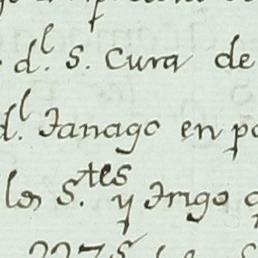 d.l S. Cura de
d.l Tanago en po
los S.tes y Trigo
2275